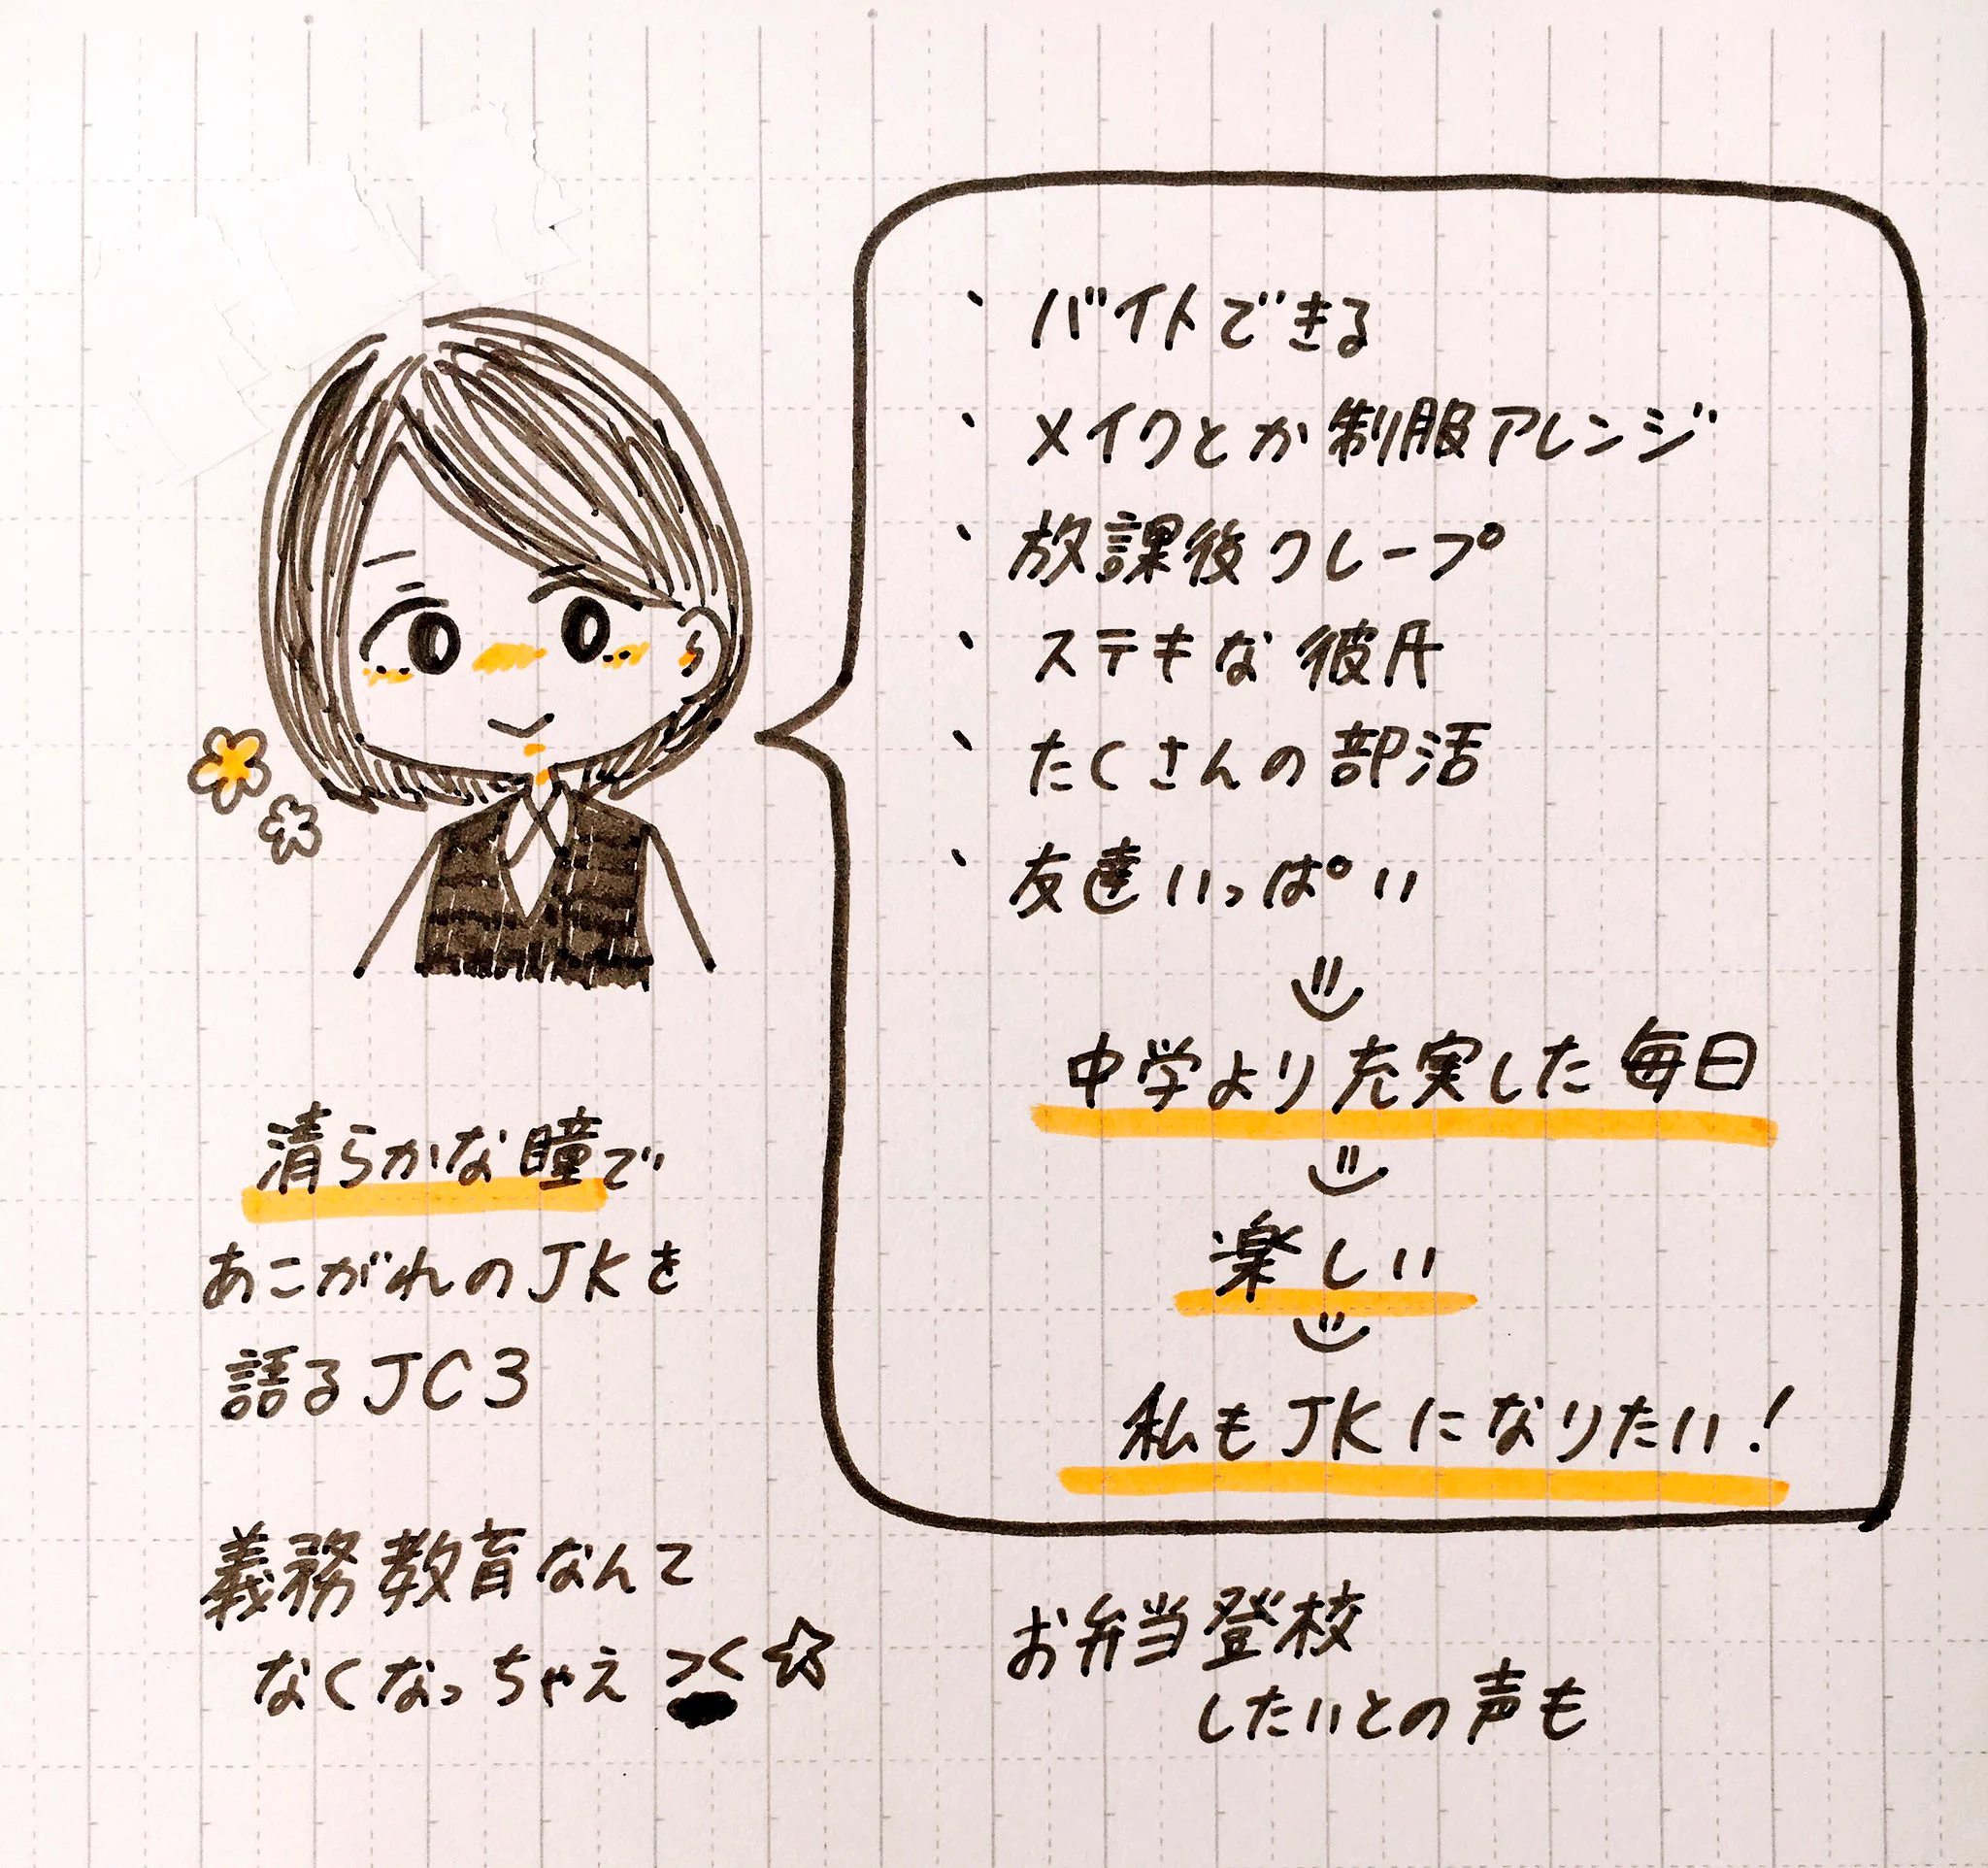 ・バイトできる
・メイクとか制服アレンジ
・放課後クレープ
・ステキな彼氏
・たくさんの部活
・友達いっぱい
中学より充実した毎日
楽しい
私もJKになりたい!
清らかな瞳で
あこがれのJKを
語るJC3
義務教育なんて
なくなっちゃえ ><☆
お弁当登校
したいとの声も